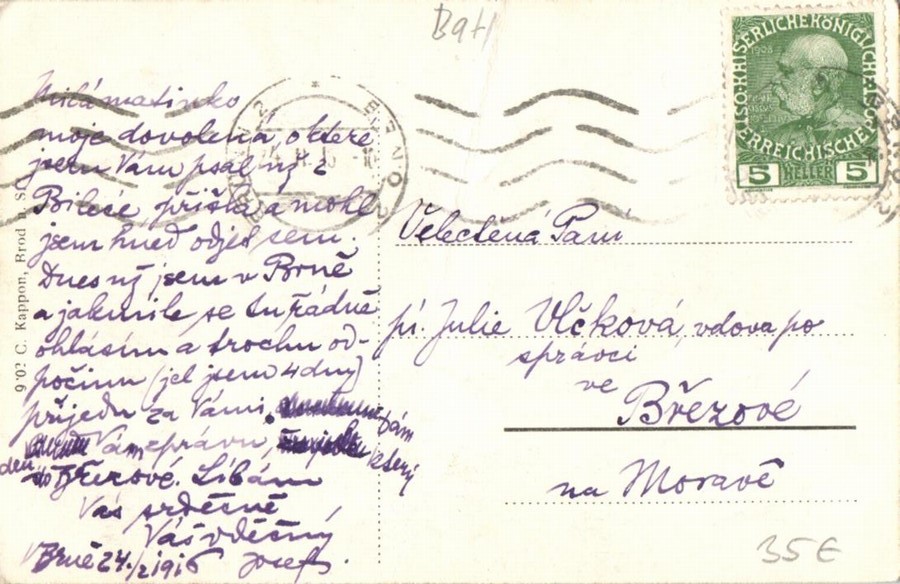 Bat
Milá matinko
moje dovolená, o které
jsem Vám psal už z
Bileće přišla a mohl
jsem hned odjet sem.
Dnes už jsem v Brně
a jakmile se tu řádně
ohlásím a trochu od-
počinu (jel jsem 4 dny)
přijedu za Vámi, dám
Vám zprávu, který
den do Březové. Líbám
Vás srdečně
Váš vděčný
Josef.
V Brně 24./I 1916
9'0? C. Kappon, Brod n. S.
KAISERLICHEKÖNIGLICHE
ÖSTERREICHISCHE
1908
5 HELLER 5
Velectěná Paní
pí. Julie Vlčková, vdova po
správci
ve
Březové
na Moravě
35€